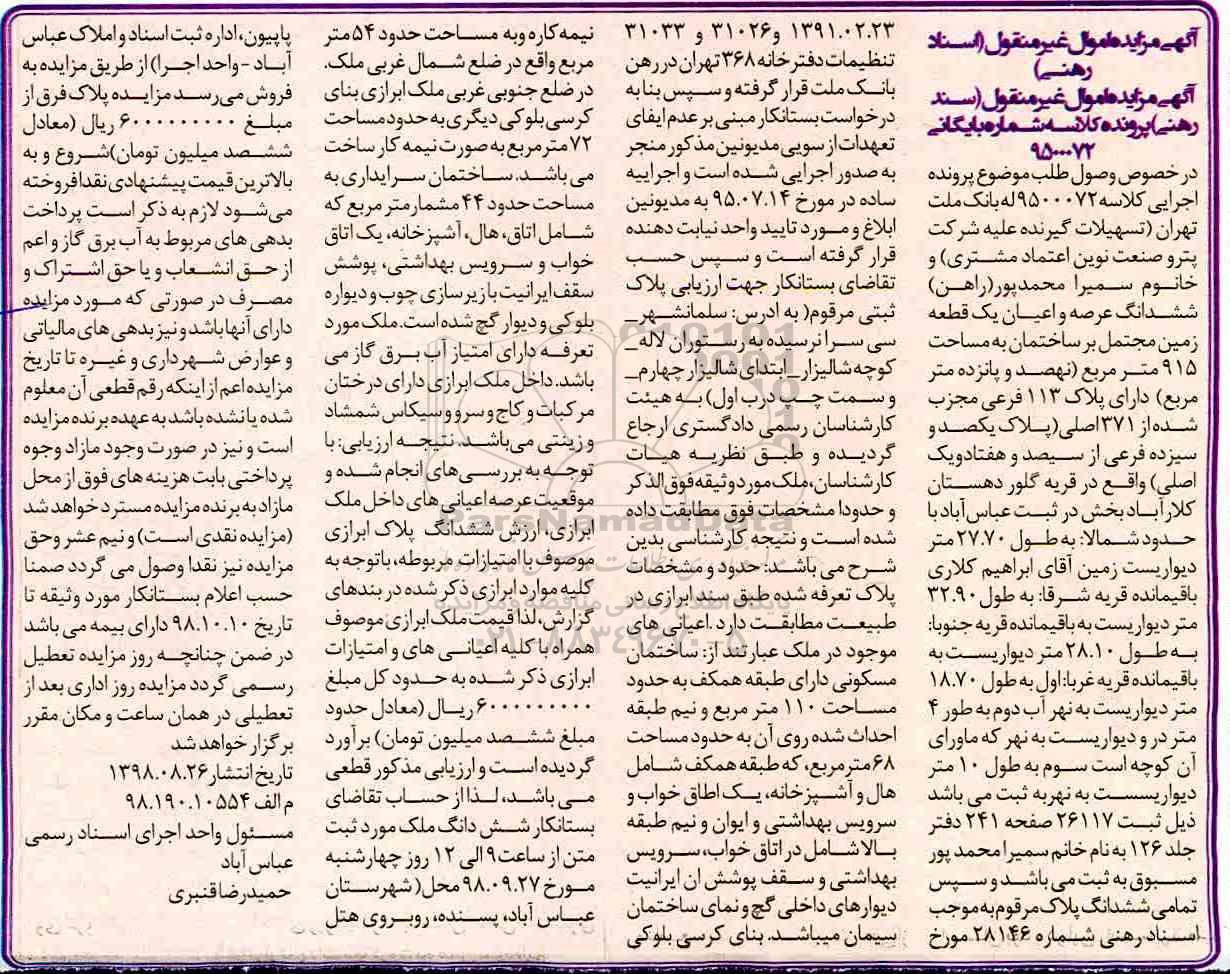 آگهی مزایده اموال غیرمنقول (اسناد
رهنی)
آگهی مزایده اموال غیر منقول (سند
رهنی) پرونده کلاسه شماره بایگانی
۹۵۰۰۰۷۲
در خصوص وصول طلب موضوع پرونده
اجرایی کلاسه ۹۵۰۰۰۷۲ له بانک ملت
تهران (تسهیلات گیرنده علیه شرکت
پترو صنعت نوین اعتماد مشتری) و
خانوم سمیرا محمدپور(راهن)
ششدانگ عرصه و اعیان یک قطعه
زمین مجتمل بر ساختمان به مساحت
۹۱۵ متر مربع (نهصد و پانزده متر
مربع) دارای پلاک ۱۱۳ فرعی مجزب
شده از ۳۷۱اصلی(پلاک یکصد و
سیزده فرعی از سیصد و هفتادویک
اصلی) واقع در قریه گلور دهستان
کلارآباد بخش در ثبت عباس آباد با
حدود شمالا: به طول ۲۷.۷۰ متر
دیواریست زمین آقای ابراهیم کلاری
باقیمانده قریه شرقا: به طول ۳۲.۹۰
متر دیواریست به باقیمانده قریه جنوبا:
به طول ۲۸.۱۰ متر دیواریست به
باقیمانده قریه غربا:اول به طول ۱۸.۷۰
متر دیواریست به نهر آب دوم به طور ۴
متر در و دیواریست به نهر که ماورای
آن کوچه است سوم به طول ۱۰ متر
دیواریسست به نهربه ثبت می باشد
ذیل ثبت ۲۶۱۱۷ صفحه ۲۴۱ دفتر
جلد ۱۲۶ به نام خانم سمیرا محمد پور
مسبوق به ثبت می باشد و سپس
تمامی ششدانگ پلاک مرقوم به موجب
اسناد رهنی شماره ۲۸۱۴۶ مورخ
۱۳۹۱.۰۲.۲۳ و۳۱۰۲۶ و ۳۱۰۳۳
تنظیمات دفترخانه ۳۶۸ تهران در رهن
بانک ملت قرار گرفته و سپس بنا به
درخواست بستانکار مبنی بر عدم ایفای
تعهدات از سویی مدیونین مذکور منجر
به صدور اجرایی شده است و اجراییه
ساده در مورخ ۹۵.۰۷.۱۴ به مدیونین
ابلاغ و مورد تایید واحد نیابت دهنده
قرار گرفته است و سپس حسب
تقاضای بستانکار جهت ارزیابی پلاک
ثبتی مرقوم( به ادرس: سلمانشهر_
سی سرا نرسیده به رستوران لاله_
کوچه شالیزار_ابتدای شالیزار چهارم_
و سمت چپ درب اول) به هیئت
کارشناسان رسمی دادگستری ارجاع
گردیده و طبق نظریه هیات
کارشناسان،ملک مورد وثیقه فوق الذکر
و حدودا مشخصات فوق مطابقت داده
شده است و نتیجه کارشناسی بدین
شرح می باشد: حدود و مشخصات
پلاک تعرفه شده طبق سند ابرازی در
طبیعت مطابقت دارد .اعیانی های
موجود در ملک عبارتند از: ساختمان
مسکونی دارای طبقه همکف به حدود
مساحت ۱۱۰ متر مربع و نیم طبقه
احداث شده روی آن به حدود مساحت
۶۸ متر مربع، که طبقه همکف شامل
هال و آشپزخانه، یک اطاق خواب و
سرویس بهداشتی و ایوان و نیم طبقه
بالا شامل در اتاق خواب، سرویس
بهداشتی و سقف پوشش ان ایرانیت
دیوارهای داخلی گچ و نمای ساختمان
سیمان میباشد. بنای کرسی بلوکی
نیمه کاره وبه مساحت حدود ۵۴ متر
مربع واقع در ضلع شمال غربی ملک.
در ضلع جنوبی غربی ملک ابرازی بنای
کرسی بلوکی دیگری به حدود مساحت
۷۲ متر مربع به صورت نیمه کار ساخت
می باشد. ساختمان سرایداری به
مساحت حدود ۴۴ مشمار متر مربع که
شامل اتاق، هال، آشپزخانه، یک اتاق
خواب و سرویس بهداشتی، پوشش
سقف ایرانیت با زیرسازی چوب و دیواره
بلوکی و دیوار گچ شده است. ملک مورد
تعرفه دارای امتیاز آب برق گاز می
باشد. داخل ملک ابرازی دارای درختان
مرکبات و کاج و سرو و سیکاس شمشاد
و زینتی می باشد. نتیجه ارزیابی: با
توجه به بررسی های انجام شده و
موقعیت عرصه اعیانی های داخل ملک
ابرازی، ارزش ششدانگ پلاک ابرازی
موصوف با امتیازات مربوطه، باتوجه به
کلیه موارد ابرازی ذکر شده در بندهای
گزارش، لذا قیمت ملک ابرازی موصوف
همراه با کلیه اعیانی های و امتیازات
ابرازی ذکر شده به حدود کل مبلغ
۶۰۰۰۰۰۰۰۰۰ ریال (معادل حدود
مبلغ ششصد میلیون تومان) برآورد
گردیده است و ارزیابی مذکور قطعی
می باشد، لذا از حساب تقاضای
بستانکار شش دانگ ملک مورد ثبت
متن از ساعت ۹ الی ۱۲ روز چهارشنبه
مورخ ۹۸.۰۹.۲۷ محل( شهرستان
عباس آباد، پسنده، روبروی هتل
پاپیون، اداره ثبت اسناد و املاک عباس
آباد -واحد اجرا) از طریق مزایده به
فروش می رسد مزایده پلاک فرق از
مبلغ ۶۰۰۰۰۰۰۰۰۰ ریال (معادل
ششصد میلیون تومان)شروع و به
بالاترین قیمت پیشنهادی نقدا فروخته
می شود لازم به ذکر است پرداخت
بدهی های مربوط به آب برق گاز و اعم
از حق انشعاب و یا حق اشتراک و
مصرف در صورتی که مورد مزایده
دارای آنها باشد و نیز بدهی های مالیاتی
و عوارض شهرداری و غیره تا تاریخ
مزایده اعم از اینکه رقم قطعی آن معلوم
شده یا نشده باشد به عهده برنده مزایده
است و نیز در صورت وجود مازاد وجوه
پرداختی بابت هزینه های فوق از محل
مازاد به برنده مزایده مسترد خواهد شد
(مزایده نقدی است) و نیم عشر و حق
مزایده نیز نقدا وصول می گردد صمنا
حسب اعلام بستانکار مورد وثیقه تا
تاریخ ۹۸.۱۰.۱۰ دارای بیمه می باشد
در ضمن چنانچه روز مزایده تعطیل
رسمی گردد مزایده روز اداری بعد از
تعطیلی در همان ساعت و مکان مقرر
برگزار خواهد شد
تاریخ انتشار ۱۳۹۸.۰۸.۲۶
م الف ۹۸.۱۹۰.۱۰۵۵۴
مسئول واحد اجرای اسناد رسمی
عباس آباد
حمیدرضا قنبری
ParsNamadData
پایگاه اطلاع رسانی مناقصه و مزایده
۰۲۱-۸۸۳۴۹۶۷۰-۵